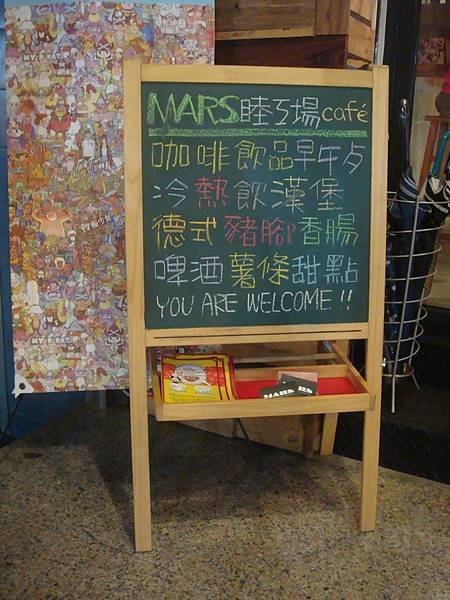 MARS睦ㄎ場café
咖啡飲品早午夕
冷熱飲漢堡
德式豬腳香腸
啤酒薯條甜點
YOU ARE WELCOME !!
MARS